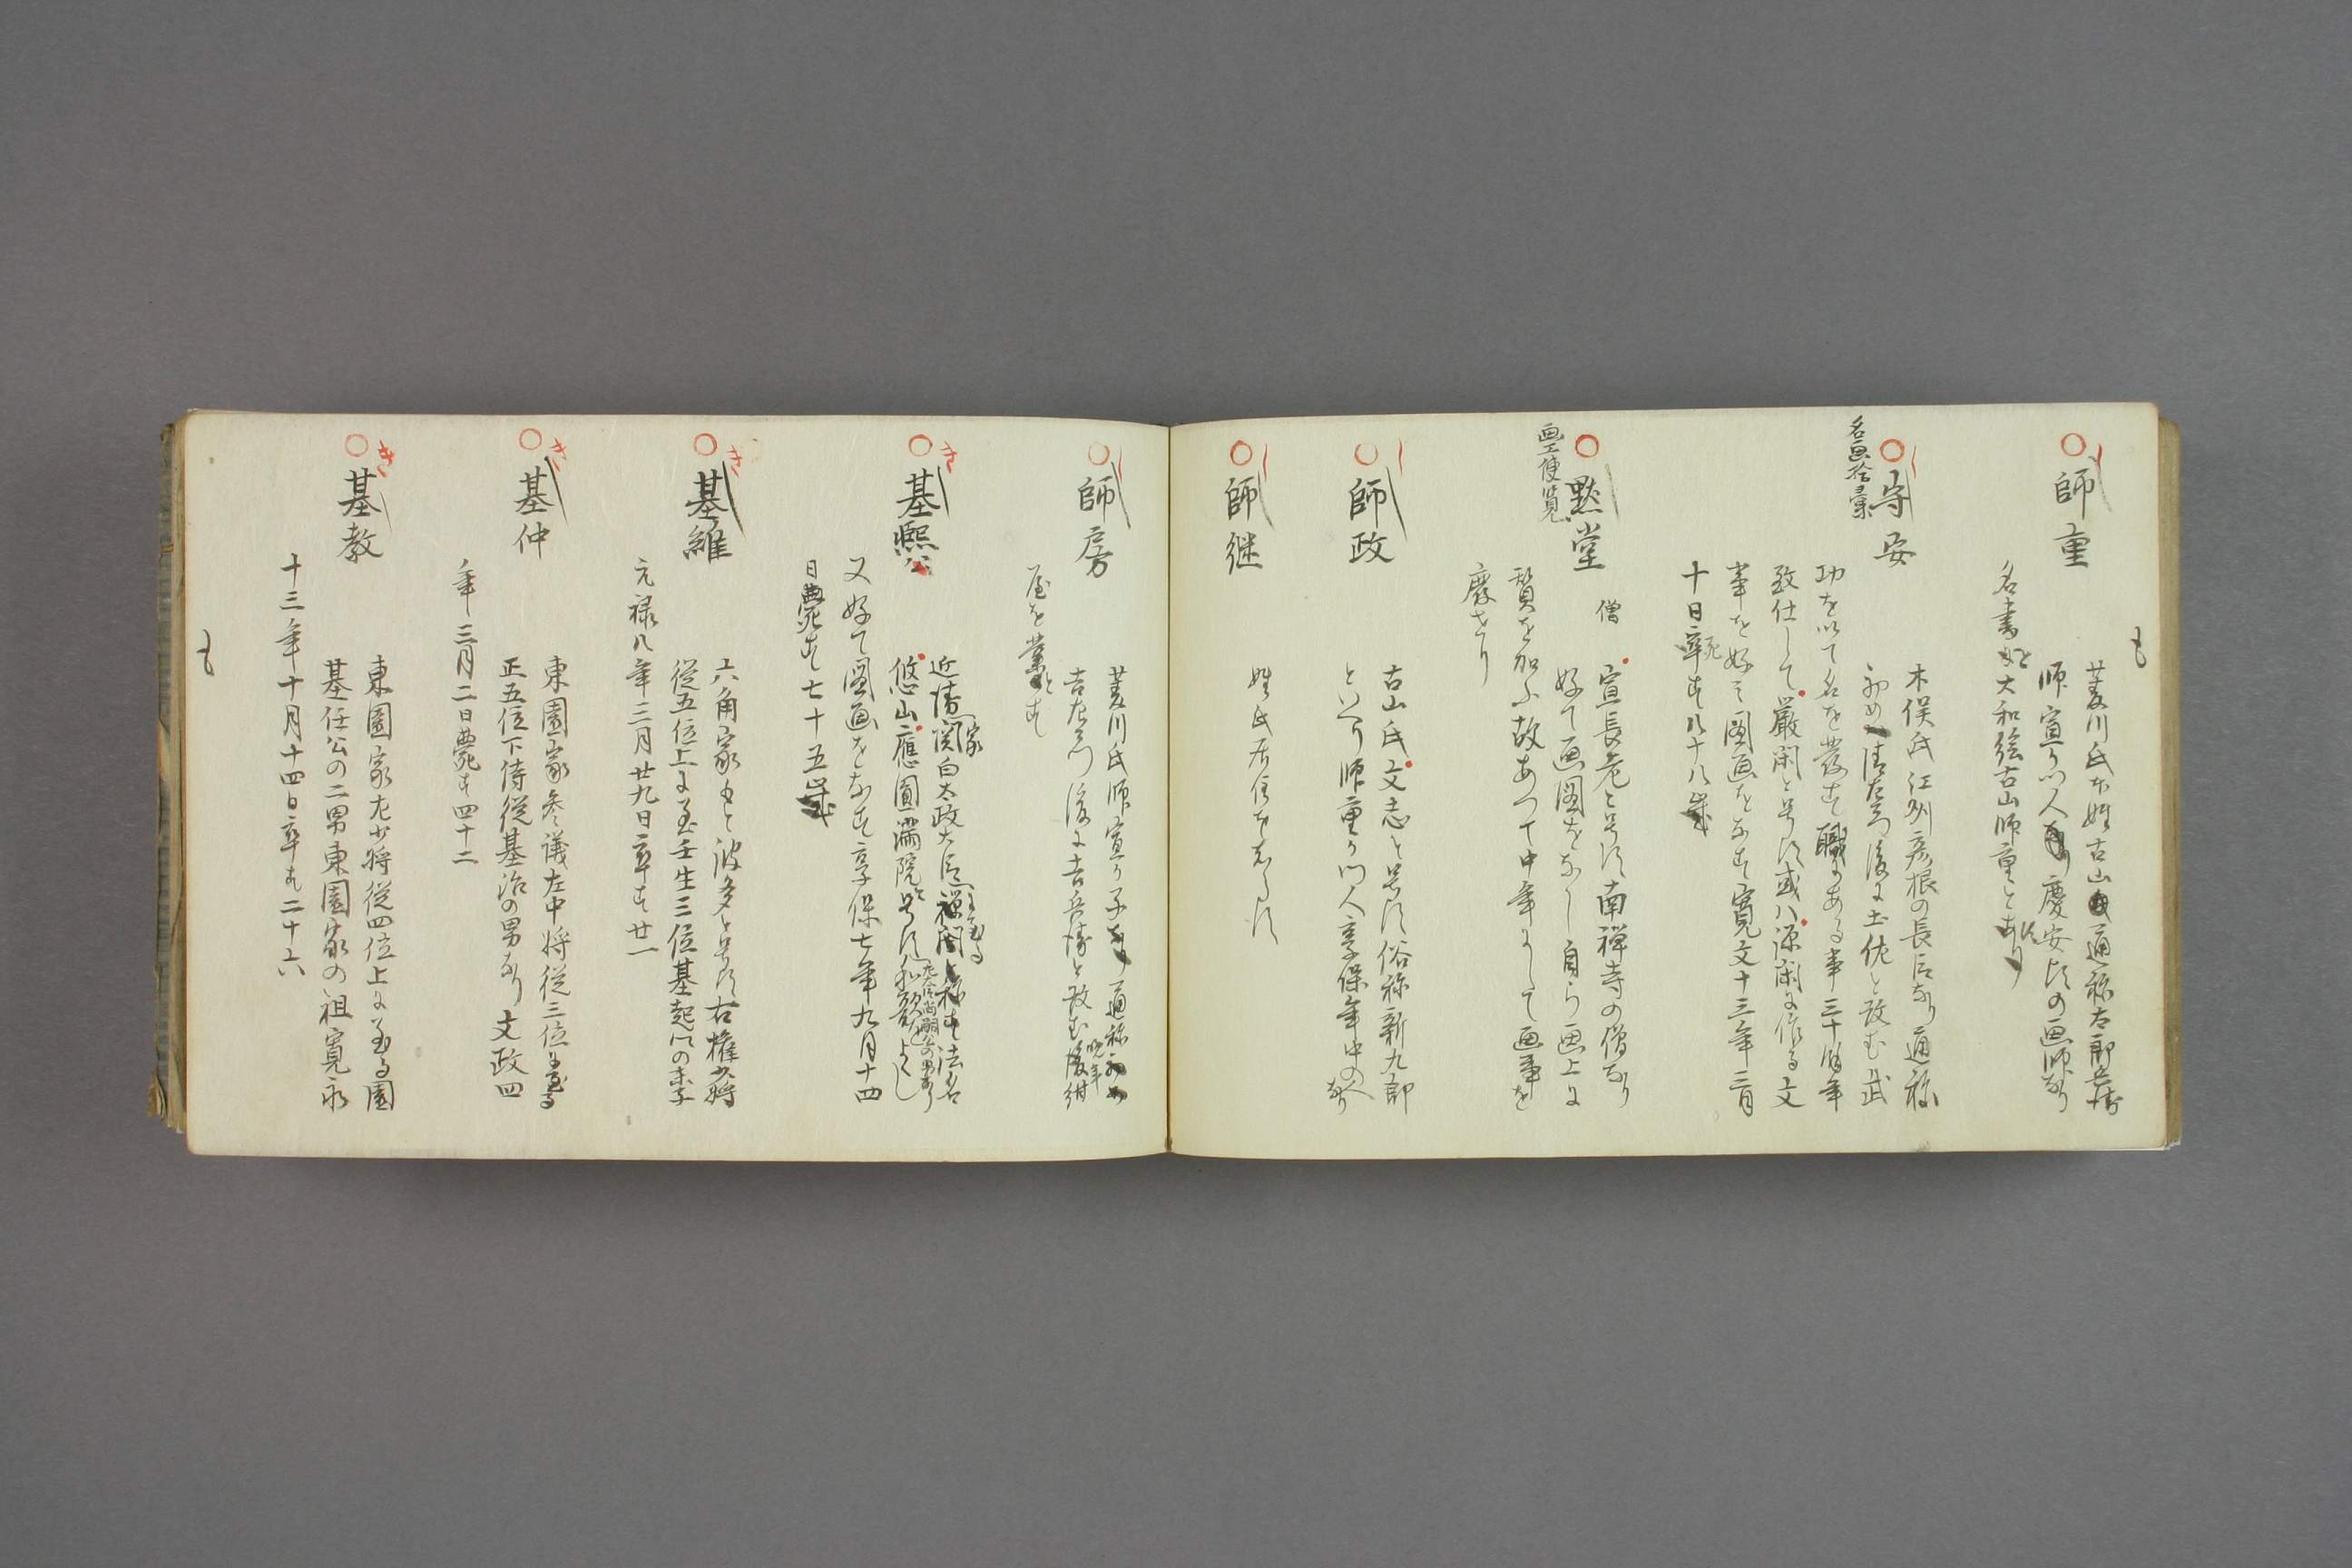 も
師重
菱川氏本姓古山通称太郎兵衛
師宣の門人慶安頃の画師なり
名書に大和絵古山師重とあり
守安
名画拾彙
木俣氏江州彦根の長臣なり通称
初め清左衛門後に土佐と改む武
功を以て名を發す職にある事三十余年
致仕して巌閑と号す或ハ源閑に作る文
筆を好み図画をなす寛文十三年三月
十日卒す八十八
黙堂
画工便覧
僧
宣長老と号す南禅寺の僧なり
好て画図をなし自ら画上に
賛を加ふ故あつて中年にして画事を
廢せり
師政
古山氏文志と号す俗称新九郎
といへり師重の門人享保年中の人なり
師継
姓氏居住をしらす
師房
菱川氏師宣の子通称初め
吉左衛門後に吉兵衛と改む晩年紺
屋を業とす
き
基熈公
近衛家関白太政大臣に至る禅閤と称す法名
悠山應圓満院と号す
左大臣尚嗣公の男なり
又好て図画をなす享保七年九月十四
日薨す七十五
き
基維
六角家もと波多と号す右権少将
従五位上に至壬生三位基起の末子
元禄八年三月廿九日卒す廿一
き
基仲
東園家参議左中将従三位に至る
正五位下侍従基治の男なり文政四
年三月二日薨す四十二
き
基教
東園家左少将従四位上に至る園
基任公の二男東園家の祖寛永
十三年十月十四日卒す二十六
も